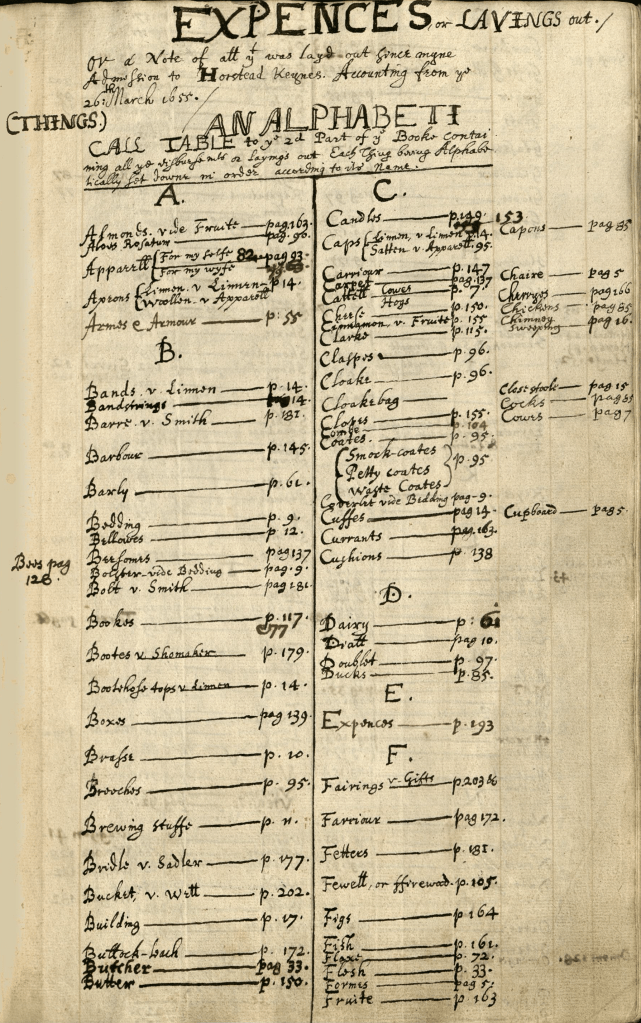 EXPENCES, or LAYINGS out./
Or a Note of all yt was layd out since myne
Admission to Horstead Keynes. Accounting from ye
26th March 1655./
(THINGS.)
AN ALPHABETI
CALL TABLE to ye 2d Part of ye Booke contai
ning all ye disbursments or layings out Each Thing being Alphabe
tically set downe in order according to its Name.
A.
Almonds. vide Fruite pag 163.
Aloes Rosatum pag. 96.
Apparell For my selfe 82 pag 93.
For my wyfe
Aprons Linnen. v Linnen p. 14.
Woollen. v Apparell
Armes & Armour p. 55
B.
Bands. v. Linnen p. 14.
Bandstrings 14.
Barre. v. Smith p. 181.
Barbour p. 145.
Barly p. 61.
Bedding p. 9.
Bellowes p. 12.
Bees pag
128.
Beesomes pag 137
Bolster vide Bedding pag. 9.
Bolt v. Smith pag 181.
Bookes p. 117.
77
Bootes v Shomaker p. 179.
Boothose tops v Linnen p. 14.
Boxes pag 139.
Brasse p. 10.
Breeches p. 95.
Brewing stuffe p. 11.
Bridle v. Sadler p. 177.
Bucket, v. Well p. 202.
Building p. 17.
Buttock-back p. 172.
Butcher pag 33.
Butter p. 150.
C.
Candles p. 149. 153
Capons pag 85
Caps Linnen, v Linnen p. 14.
Satten v. Apparell. 95.
Carriour p. 147
Chaire pag 5
Carpet p. 137
Cattell Cowes p. 7.
Hogs
Cherryes pag 166
Cheese p. 150.
Chickens pag 85
Cinnamon, v. Fruite p. 155
Chimney
sweeping pag 16.
Clarke p. 115.
Claspes p. 96.
Cloake p. 96.
Closestoole pag 15
Cloakebag
Cocks pag 85
Cloves p. 155.
Cowes pag 7
Combe p. 104
Coates. p. 95.
Smock-coates
Petty coates p. 95
Waste Coates
Coverlet vide Bedding pag. 9.
Cuffes pag 14.
Cupboard pag 5.
Currants pag. 163.
Cushions p. 138
D.
Dairy p. 61
Diall pag 10.
Doublet p. 97.
Ducks p. 85.
E.
Expences p. 193
F.
Fairings v. Gifts p. 203
Farriour pag 172.
Fetters p. 181.
Fewell, or ffirewood. p. 105.
Figs p. 164
Fish p. 161.
Flaxe p. 72.
Flesh p. 33.
Formes pag 5.
Fruite p. 163